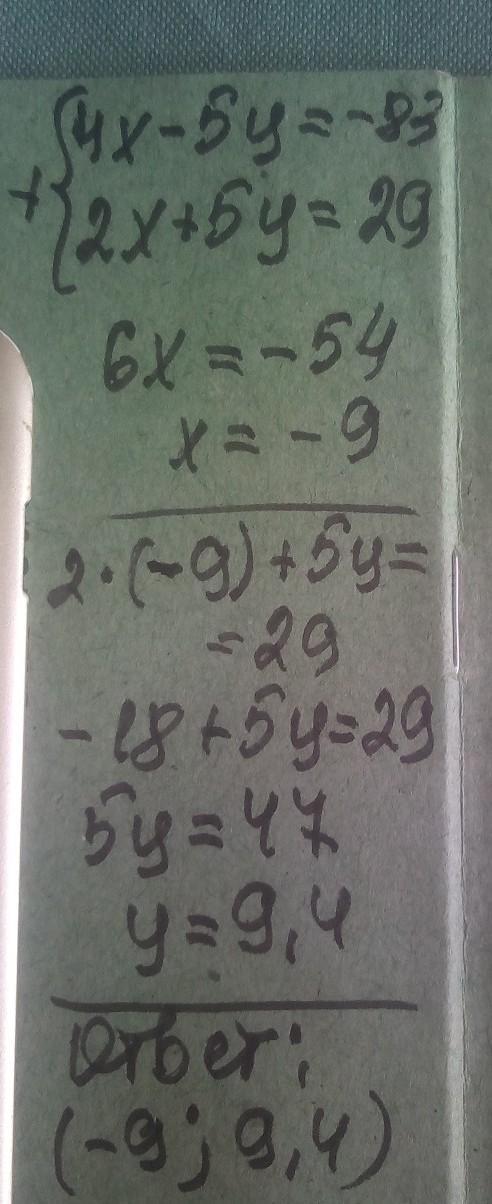 +{4x-5y=-83
2x+5y=29
6x=-54
x=-9
2·(-9)+5y=
=29
-18+5y=29
5y=47
y=9,4
Ответ:
(-9; 9,4)